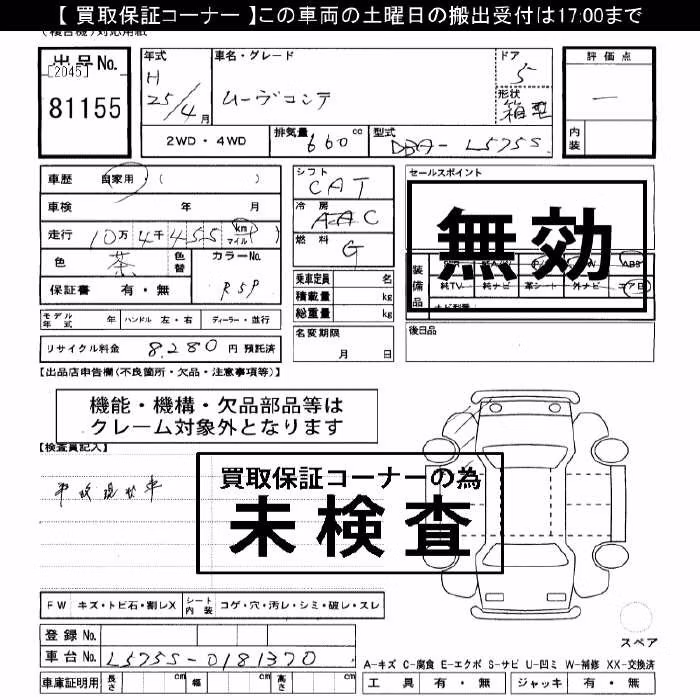 【 買取保証コーナー 】この車両の土曜日の搬出受付は17:00まで
出品No.
[2045]
81155
年式
H
25/4月
車名・グレード
ムーヴコンテ
ドア
5
形状
箱型
評価点
—
内装
2WD・4WD
排気量 660 cc
型式 DBA-L575S
車歴 自家用 ( )
車検 年 月
走行 10万4千455 km マイル
色 茶 色替
カラーNo. R59
保証書 有・無
シフト
CAT
冷房
AAC
燃料
G
乗車定員 名
積載量 kg
総重量 kg
セールスポイント
無効
装備品
ABS
純TV 純ナビ 革シート 外ナビ エアB
モデル年式 年 ハンドル 左・右 ディーラー・並行
名変期限
月 日
後日品
リサイクル料金 8,280 円 預託済
【出品店申告欄(不良箇所・欠品・注意事項等)】
機能・機構・欠品部品等は
クレーム対象外となります
【検査員記入】
事故現状車
買取保証コーナーの為
未検査
FW キズ・トビ石・割レX シート内装 コゲ・穴・汚レ・シミ・破レ・スレ
スペア
登録No.
車台No. L575S-0181370
車庫証明用 長さ cm 幅 cm 高さ cm
A-キズ C-腐食 E-エクボ S-サビ U-凹ミ W-補修 XX-交換済
工具 有・無 ジャッキ 有・無